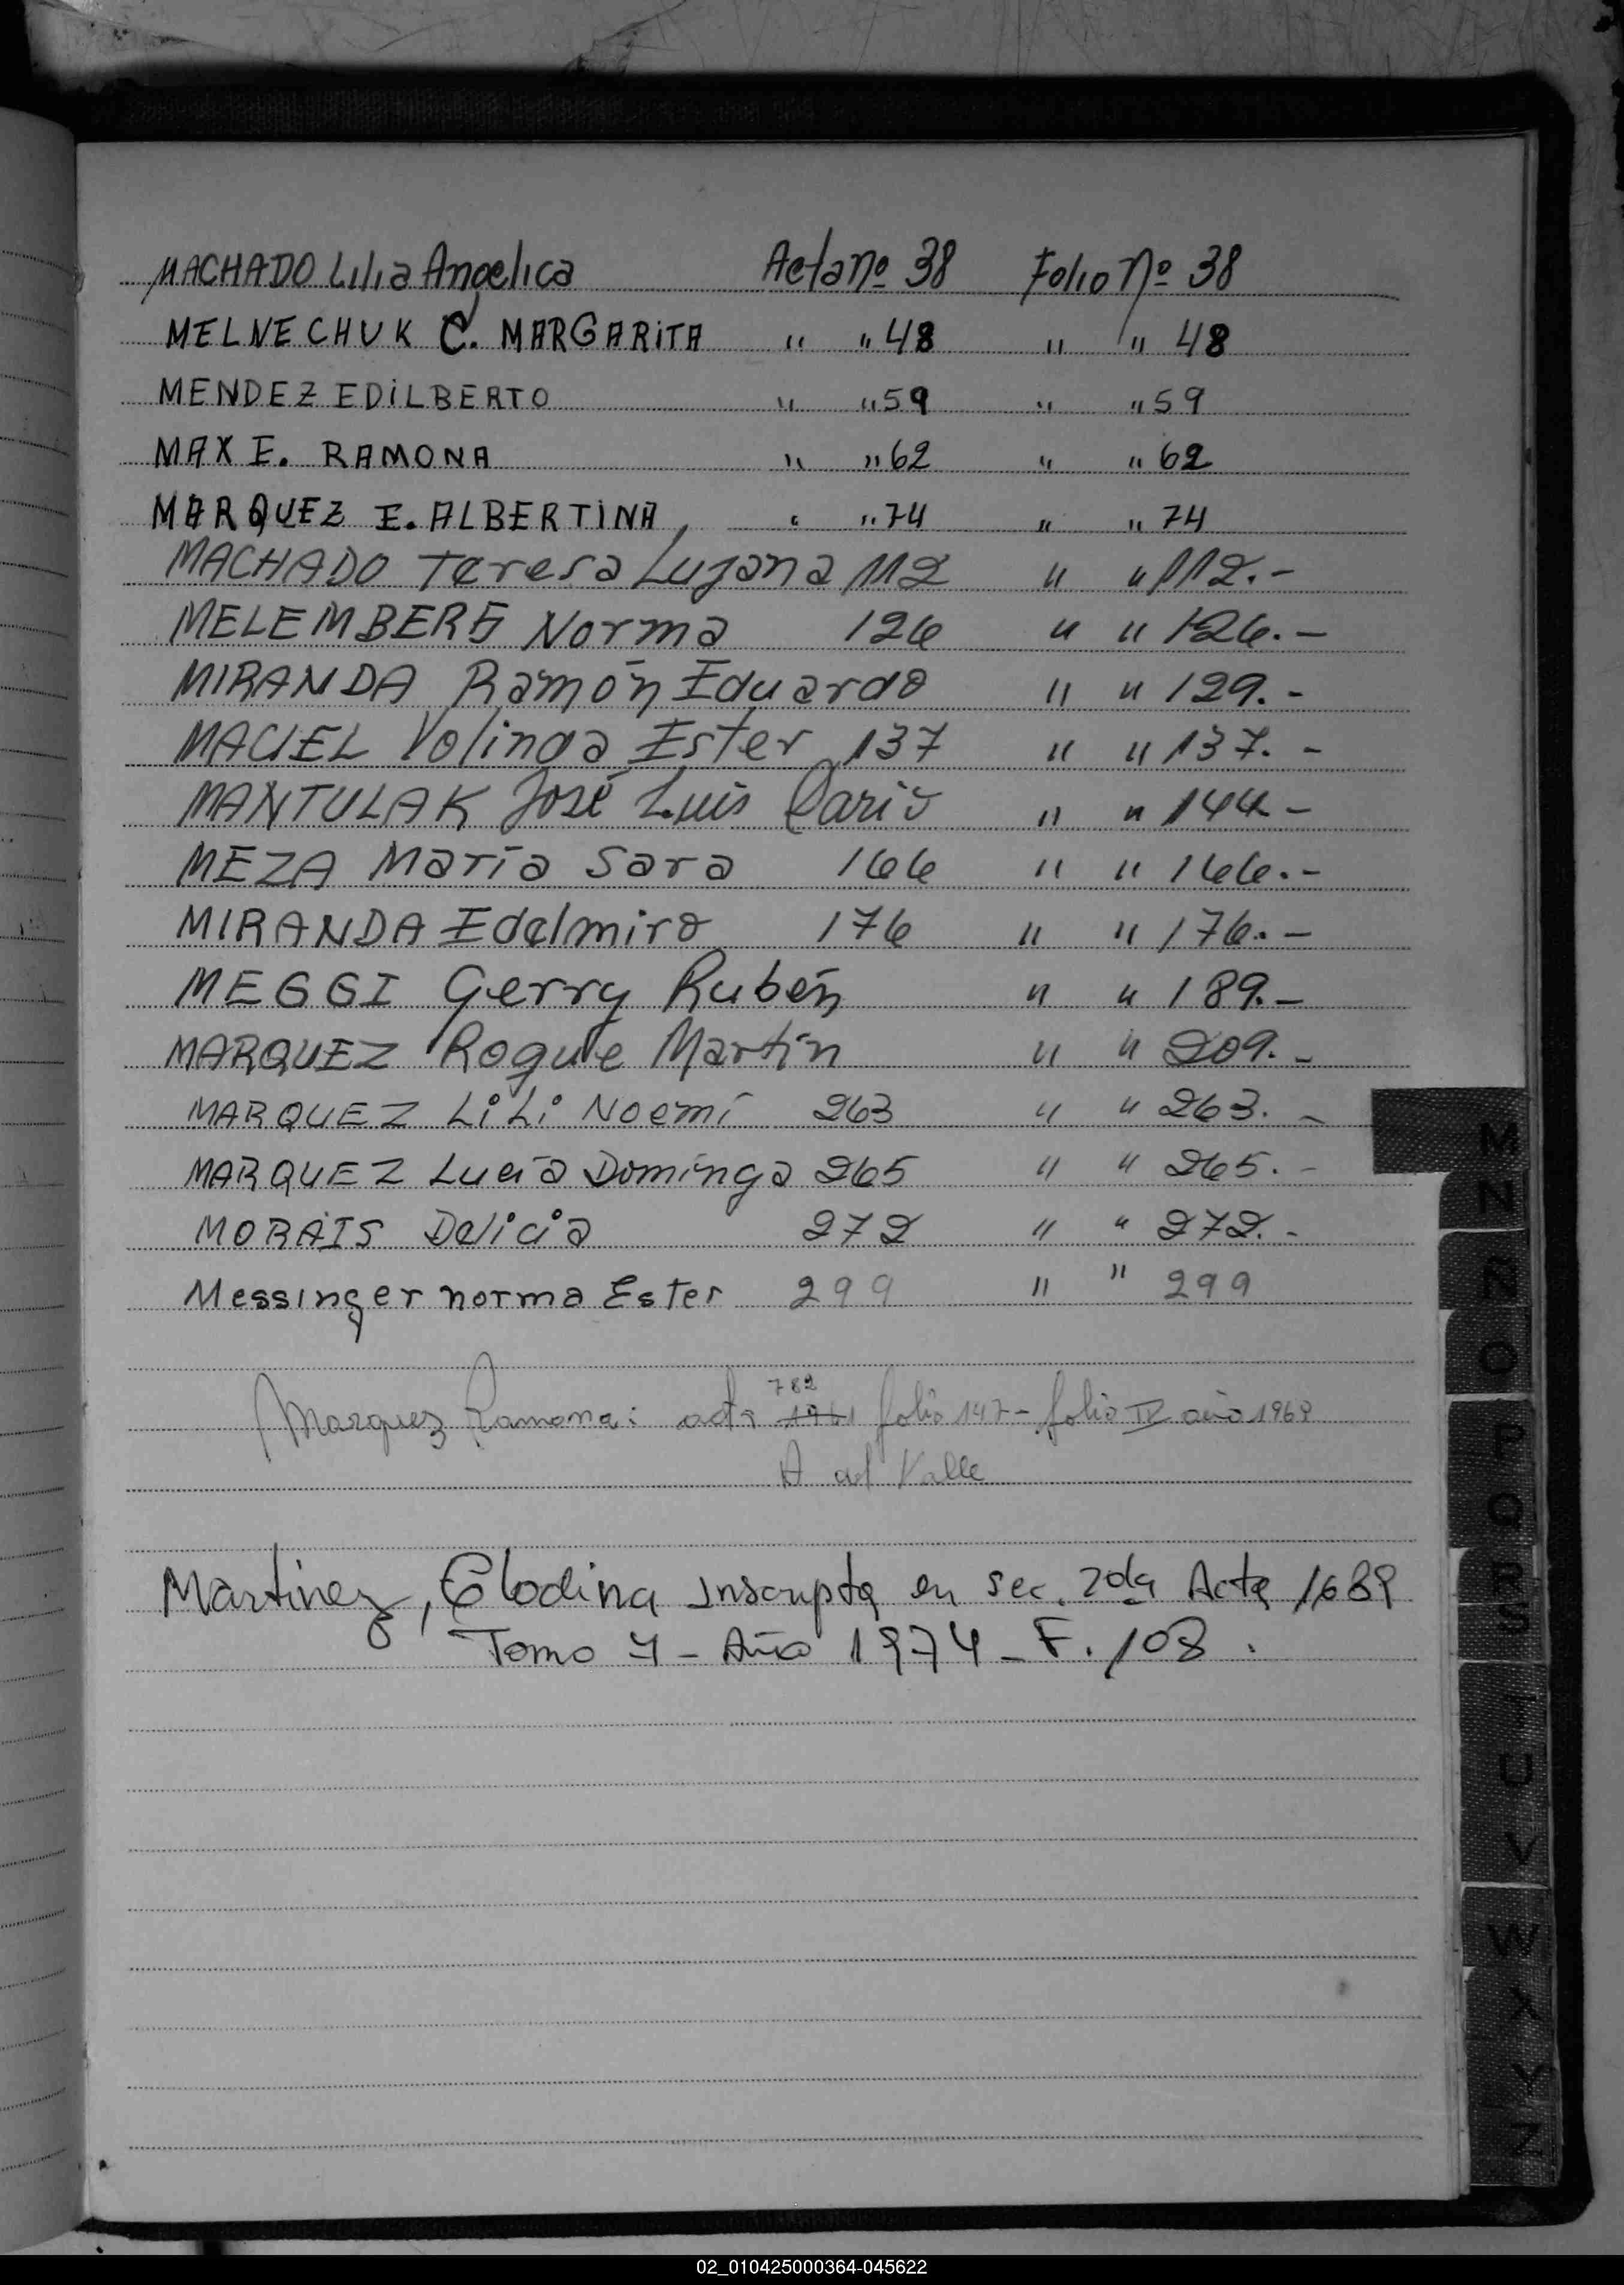 MACHADO Lilia Angelica Acta nº 38 Folio Nº 38
MELNECHUK C. MARGARITA " " 48 " " 48
MENDEZ EDILBERTO " " 59 " " 59
MAX E. RAMONA " " 62 " " 62
MARQUEZ E. ALBERTINA " " 74 " " 74
MACHADO Teresa Lujana 112 " " 112.-
MELEMBERG Norma 126 " " 126.-
MIRANDA Ramón Eduardo " " 129.-
MACIEL Volinga Ester 137 " " 137.-
MANTULAK José Luis Dario " " 144-
MEZA María Sara 166 " " 166.-
MIRANDA Edelmiro 176 " " 176.-
MEGGI Gerry Rubén " " 189.-
MARQUEZ Roque Martín " " 209.-
MARQUEZ LiLi Noemí 263 " " 263.-
MARQUEZ Lucía Dominga 265 " " 265.-
MORAIS Delicia 272 " " 272.-
Messinger norma Ester 299 " " 299
782
Marquez Ramona: acta folio 147- folio IV año 1968
A del Valle
Martinez, Clodina Inscripta en sec. 2da Acta 1689
Tomo 4 - Año 1974 - F. 108.
M
N
Ñ
O
P
Q
R
S
T
U
V
W
X
Y
Z
02_010425000364-045622